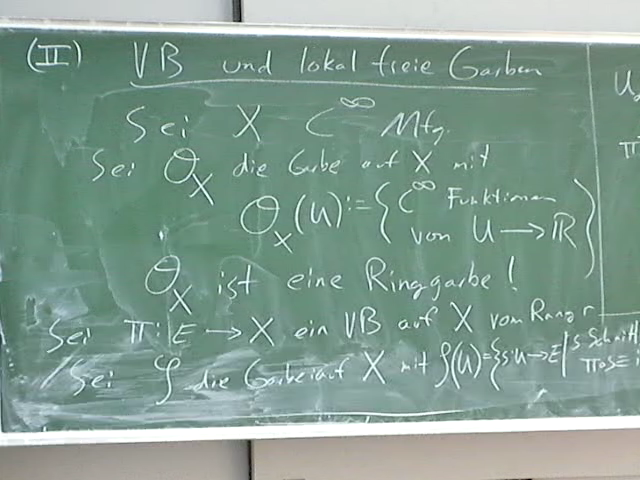 (II) VB und lokal freie Garben
Sei X C^∞ Mfg.
Sei O_X die Garbe auf X mit
O_X(U) := { C^∞ Funktionen
von U → ℝ }
O_X ist eine Ringgarbe!
Sei π: E → X ein VB auf X vom Rang r
Sei 𝒮 die Garbe auf X mit 𝒮(U) = {s: U → E | s Schnitt
π∘s =
U
π